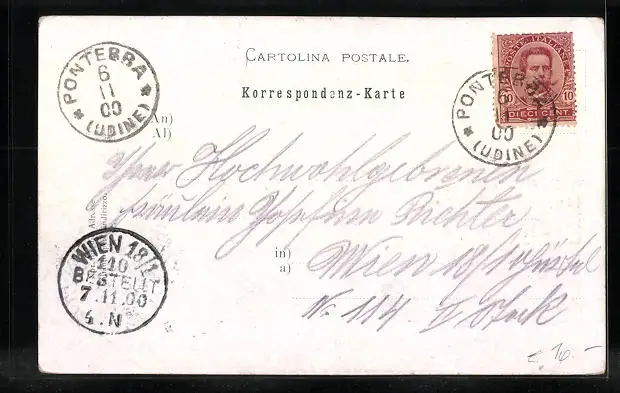 CARTOLINA POSTALE.
Korrespondenz-Karte
PONTEBBA
6
11
00
(UDINE)
POSTE ITALIANE
10 10
DIECI CENT
PONTEBBA
6
11
00
(UDINE)
An)
Al)
Ihrer Hochwohlgeboren
Fräulein Josefine Richter
in)
a)
Wien 18/1
No 114. II Stock
WIEN 18/1
110
BESTELLT
7.11.00
4.N
10.-